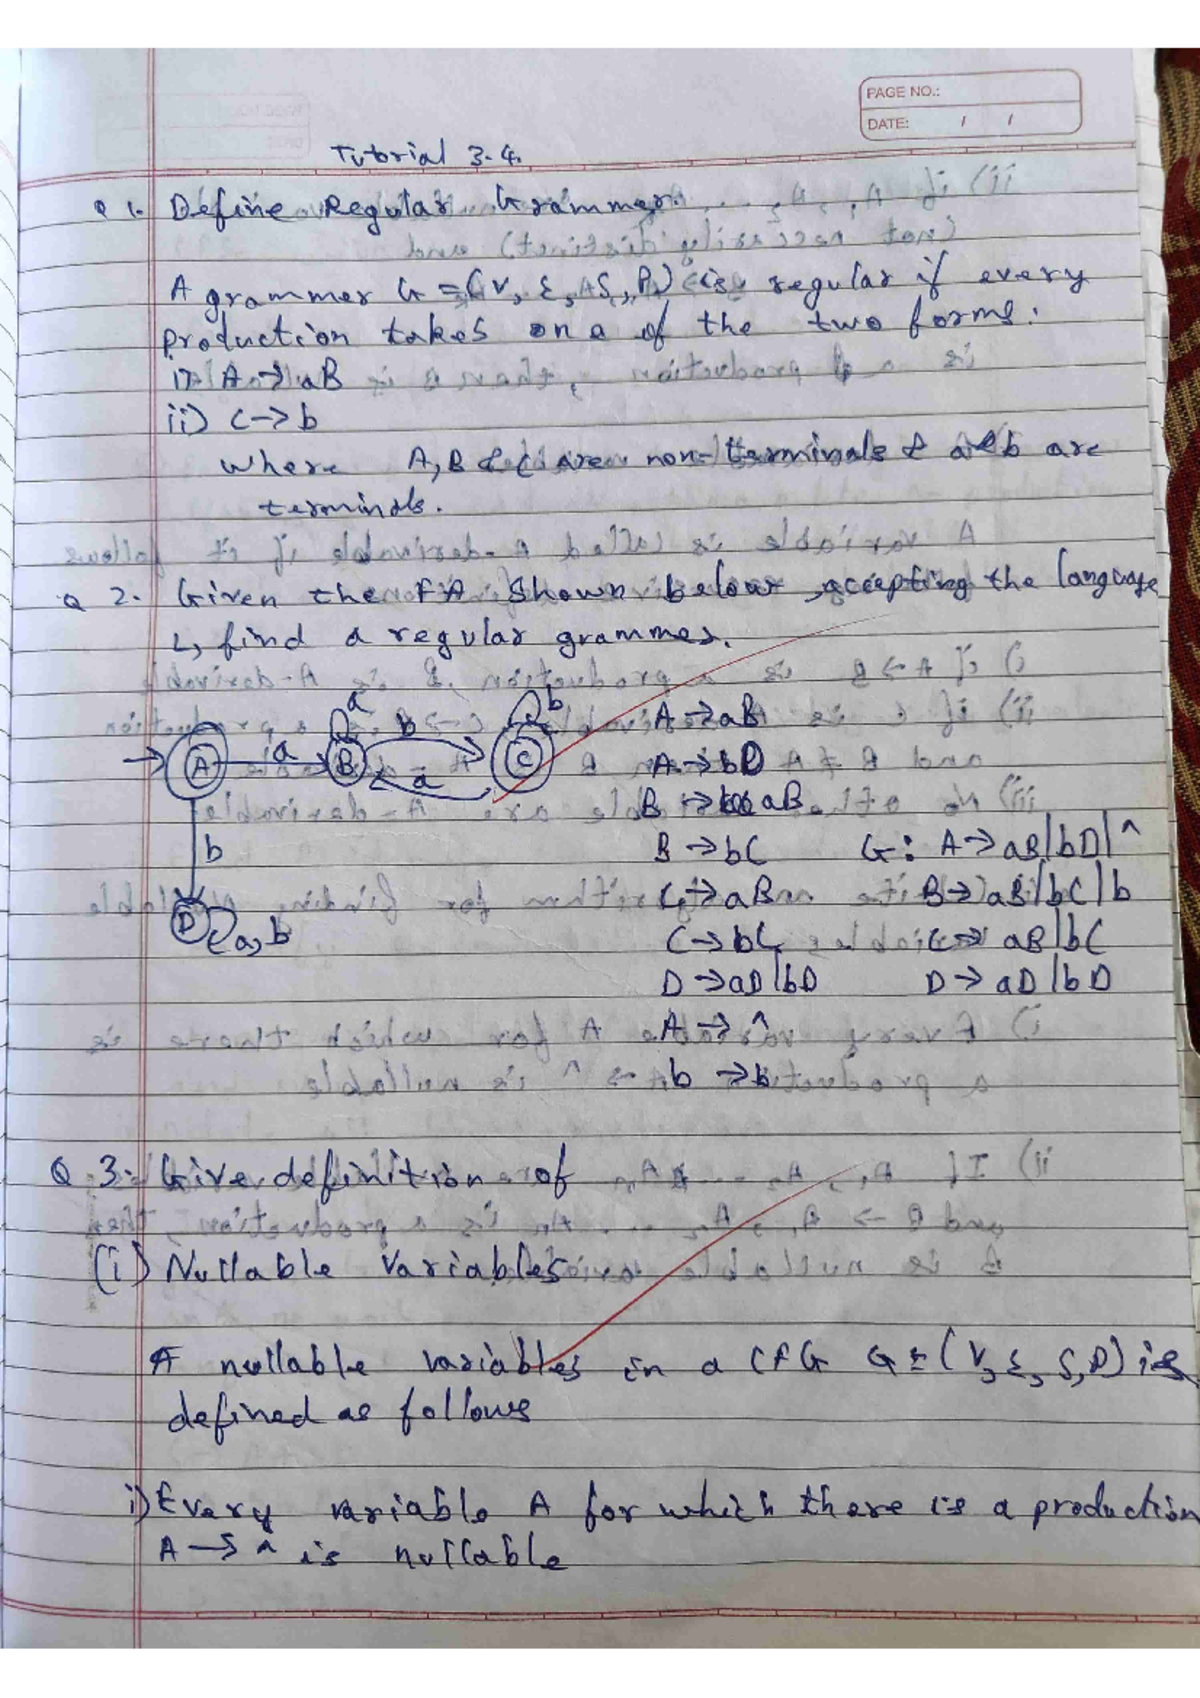 PAGE NO.:
DATE: / /
Tutorial 3.4.
Q 1. Define Regular Grammer.
A grammer G = (V, Σ, S, P) is regular if every
production takes one of the two forms:
i) A → aB
ii) C → b
where A, B & C are non-terminals & a & b are
terminals.
Q 2. Given the FA shown below, accepting the language
L, find a regular grammer.
a b
a b
A B C
a
b
D a, b
A → aB
A → bD
B → aB
B → bC G: A → aB|bD|^
C → aB B → aB|bC|b
C → bC C → aB|bC
D → aD|bD D → aD|bD
A → ^
b → b
Q 3. Give definition of
(i) Nullable Variables
A nullable variables in a CFG G = (V, Σ, S, P) is
defined as follows
i) Every variable A for which there is a production
A → ^ is nullable